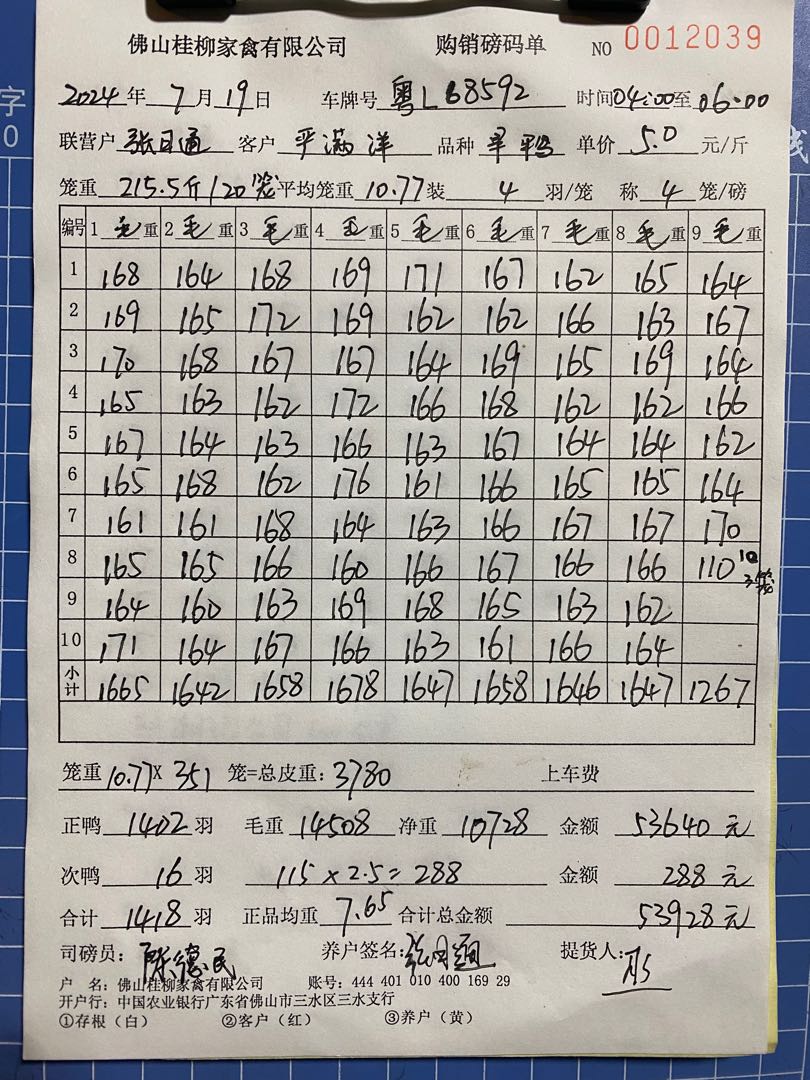 佛山桂柳家禽有限公司 购销磅码单 NO 0012039
2024年7月19日 车牌号 粤L68592 时间04:00至06:00
联营户 张日通 客户 平满洋 品种 旱鸭 单价 5.0 元/斤
笼重 215.5斤/20笼 平均笼重 10.77 装 4 羽/笼 称 4 笼/磅
编号 1毛重 2毛重 3毛重 4毛重 5毛重 6毛重 7毛重 8毛重 9毛重
1 168 164 168 169 171 167 162 165 164
2 169 165 172 169 162 162 166 163 167
3 170 168 167 167 164 169 165 169 164
4 165 163 162 172 166 168 162 162 166
5 167 164 163 166 163 167 164 164 162
6 165 168 162 176 161 166 165 165 164
7 161 161 168 164 163 166 167 167 170
8 165 165 166 160 166 167 166 166 110 10 3笼
9 164 160 163 169 168 165 163 162
10 171 164 167 166 163 161 166 164
小计 1665 1642 1658 1678 1647 1658 1646 1647 1267
笼重 10.77 X 351 笼=总皮重: 3780 上车费
正鸭 1402 羽 毛重 14508 净重 10728 金额 53640元
次鸭 16 羽 115×2.5=288 金额 288元
合计 1418 羽 正品均重 7.65 合计总金额 53928元
司磅员: 陈德民 养户签名: 张日通 提货人:
户 名: 佛山桂柳家禽有限公司 账号: 444 401 010 400 169 29
开户行: 中国农业银行广东省佛山市三水区三水支行
①存根(白) ②客户(红) ③养户(黄)
字
0
线